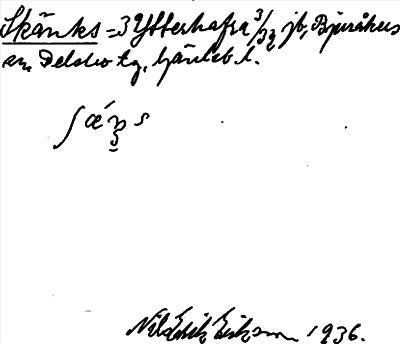 Skänks = 3 Ytterhafra 3/32 jb, Bjuråkers
sn, Delsbo tg, Gävleb. l.
Nils Erik Eriksson 1936.